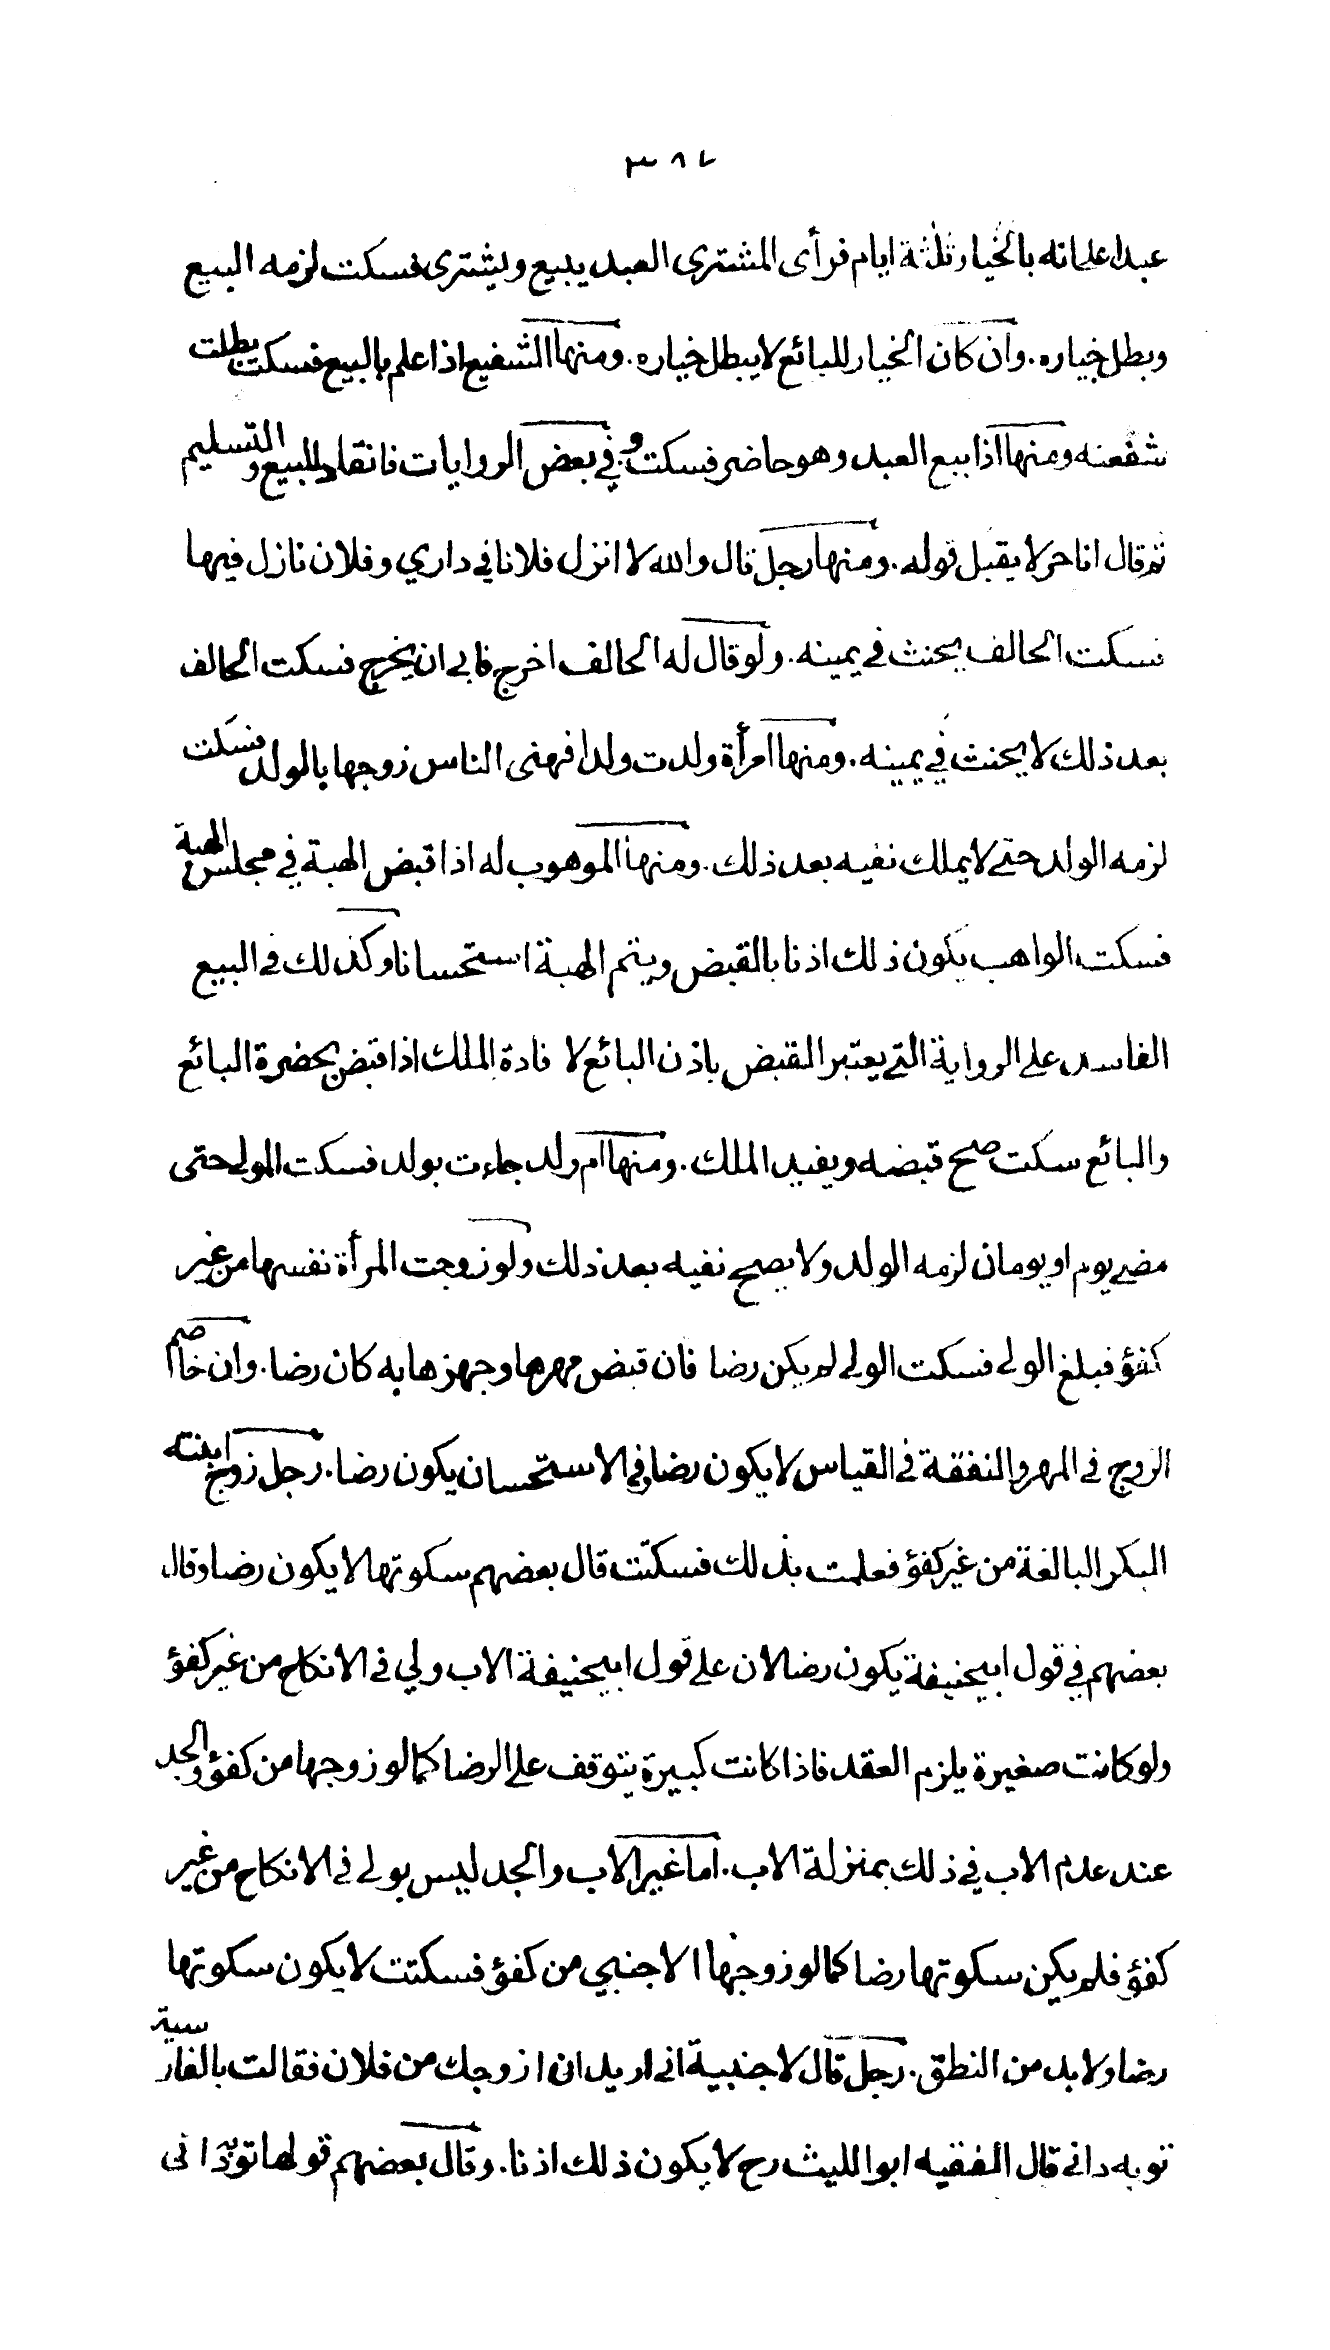 ٣٨٢
عبدا على انه بالخيار ثلثة ايام فرأى المشترى العبد يبيع ويشترى فسكت لزمه البيع
وبطل خياره. وان كان الخيار للبائع لا يبطل خياره. ومنها الشفيع اذا علم بالبيع فسكت بطلت
شفعته ومنها اذا بيع العبد وهو حاضر فسكت وفي بعض الروايات فانقاد للبيع والتسليم
ثم قال انا حر لا يقبل قوله. ومنها رجل قال والله لا انزل فلانا في داري وفلان نازل فيها
فسكت الحالف يحنث في يمينه. ولو قال له الحالف اخرج فابى ان يخرج فسكت الحالف
بعد ذلك لا يحنث في يمينه. ومنها امرأة ولدت ولدا فهنى الناس زوجها بالولد فسكت
لزمه الولد حتى لا يملك نفيه بعد ذلك. ومنها الموهوب له اذا قبض الهبة في مجلس الهبة
فسكت الواهب يكون ذلك اذنا بالقبض ويتم الهبة استحسانا وكذلك في البيع
الفاسد على الرواية التي يعتبر القبض باذن البائع لا فادة الملك اذا قبض بحضرة البائع
والبائع سكت صح قبضه ويفيد الملك. ومنها ام ولد جاءت بولد فسكت المولى حتى
مضى يوم او يومان لزمه الولد ولا يصح نفيه بعد ذلك ولو زوجت المرأة نفسها من غير
كفؤ فبلغ الولى فسكت الولى لم يكن رضا فان قبض مهرها وجهزها به كان رضا. وان خاصم
الزوج في المهر والنفقة في القياس لا يكون رضا وفي الاستحسان يكون رضا. رجل زوج ابنته
البكر البالغة من غير كفؤ فعلمت بذلك فسكتت قال بعضهم سكوتها لا يكون رضا وقال
بعضهم في قول ابيحنيفة يكون رضا لان على قول ابيحنيفة الاب ولي في الانكاح من غير كفؤ
ولو كانت صغيرة يلزم العقد فاذا كانت كبيرة يتوقف على الرضا كما لو زوجها من كفؤ والجد
عند عدم الاب في ذلك بمنزلة الاب. اما غير الاب والجد ليس بولى في الانكاح من غير
كفؤ فلم يكن سكوتها رضا كما لو زوجها الاجنبي من كفؤ فسكتت لا يكون سكوتها
رضا ولا بد من النطق. رجل قال لاجنبية انى اريد ان ازوجك من فلان فقالت بالفارسية
تو به دانى قال الفقيه ابو الليث رح لا يكون ذلك اذنا. وقال بعضهم قولها تو به دانى